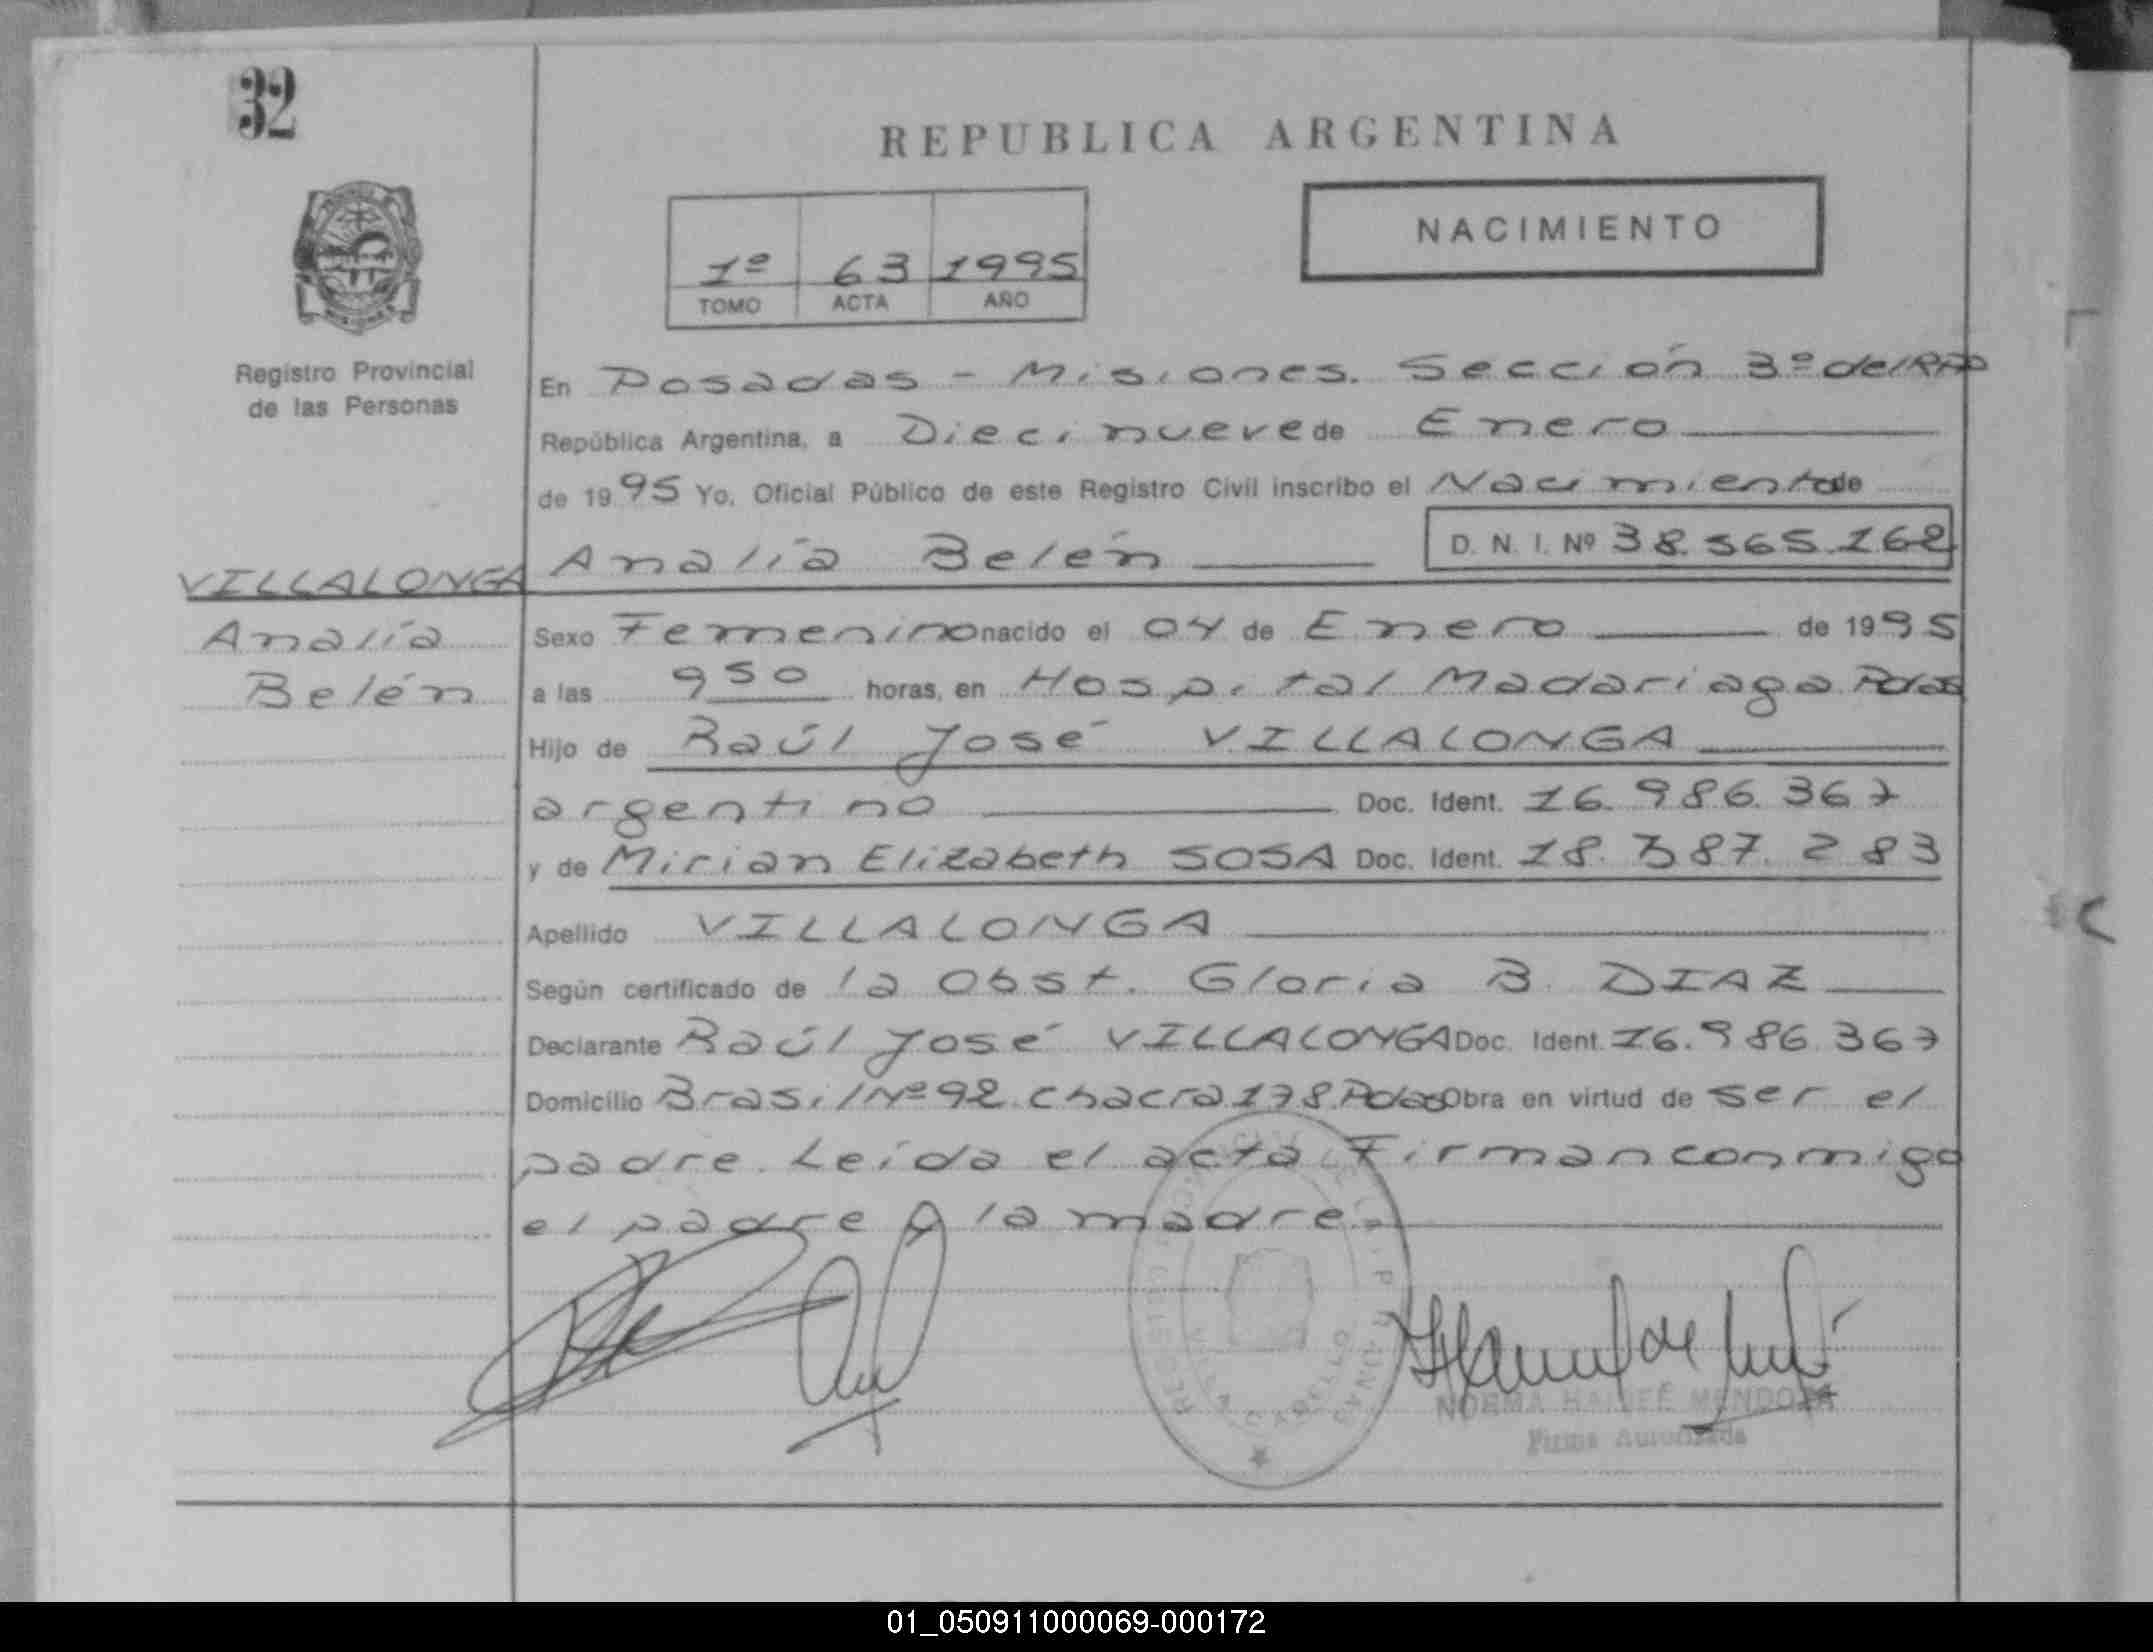 32
REPUBLICA ARGENTINA
NACIMIENTO
1º 63 1995
TOMO ACTA AÑO
Registro Provincial
de las Personas
En Posadas - Misiones. Sección 3º del RPP
República Argentina, a Diecinueve de Enero
de 1995 Yo, Oficial Público de este Registro Civil inscribo el Nacimiento de
Analía Belén D. N. I. Nº 38.565.162
VILLALONGA
Analía
Belén
Sexo Femenino nacido el 04 de Enero de 1995
a las 950 horas, en Hospital Madariaga Pdas
Hijo de Raúl José VILLALONGA
argentino Doc. Ident. 16.986.367
y de Mirian Elizabeth SOSA Doc. Ident. 18.387.283
Apellido VILLALONGA
Según certificado de la Obst. Gloria B. DIAZ
Declarante Raúl José VILLALONGA Doc. Ident. 16.986.367
Domicilio Brasil Nº 92 chacra 178 Pdas Obra en virtud de ser el
padre. Leída el acta Firman conmigo
el padre y la madre.
NORMA HAIDEÉ MENDOZA
Firma Autorizada
01_050911000069-000172